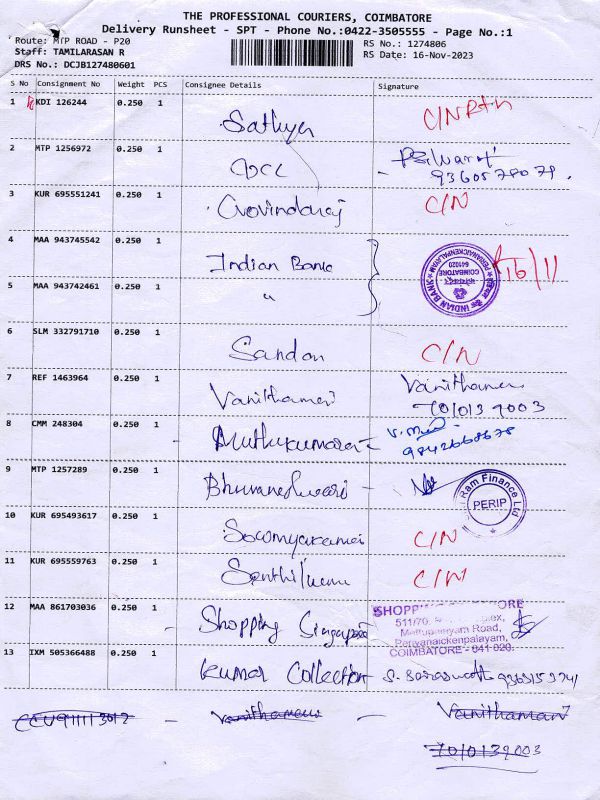 THE PROFESSIONAL COURIERS, COIMBATORE
Delivery Runsheet - SPT - Phone No.:0422-3505555 - Page No.:1
Route: MTP ROAD - P20
RS No.: 1274806
Staff: TAMILARASAN R
RS Date: 16-Nov-2023
DRS No.: DCJB127480601
S No Consignment No Weight PCS Consignee Details Signature
1 KDI 126244 0.250 1 Sathya C/N
2 MTP 1256972 0.250 1
3 KUR 695551241 0.250 1 Govindaraj C/N
4 MAA 943745542 0.250 1 Indian Bank 16/11
INDIAN BANK
COIMBATORE
641020
PERIYANAICKENPALAYAM
5 MAA 943742461 0.250 1 "
6 SLM 332791710 0.250 1 C/N
7 REF 1463964 0.250 1 Vanithamani Vanithamani
7010139003
8 CMM 248304 0.250 1 Muthukumar
9842668678
9 MTP 1257289 0.250 1 Bhuvaneshwari -
Ram Finance Ltd
PERIP
10 KUR 695493617 0.250 1 C/N
11 KUR 695559763 0.250 1 C/N
12 MAA 861703036 0.250 1 Shopping Singapore
511/70,
Road,
Periyanaickenpalayam,
COIMBATORE - 641 020.
13 IXM 505366488 0.250 1 Kumar Collection S. Saraswathi
- Vanithamani - Vanithamani
7010139003